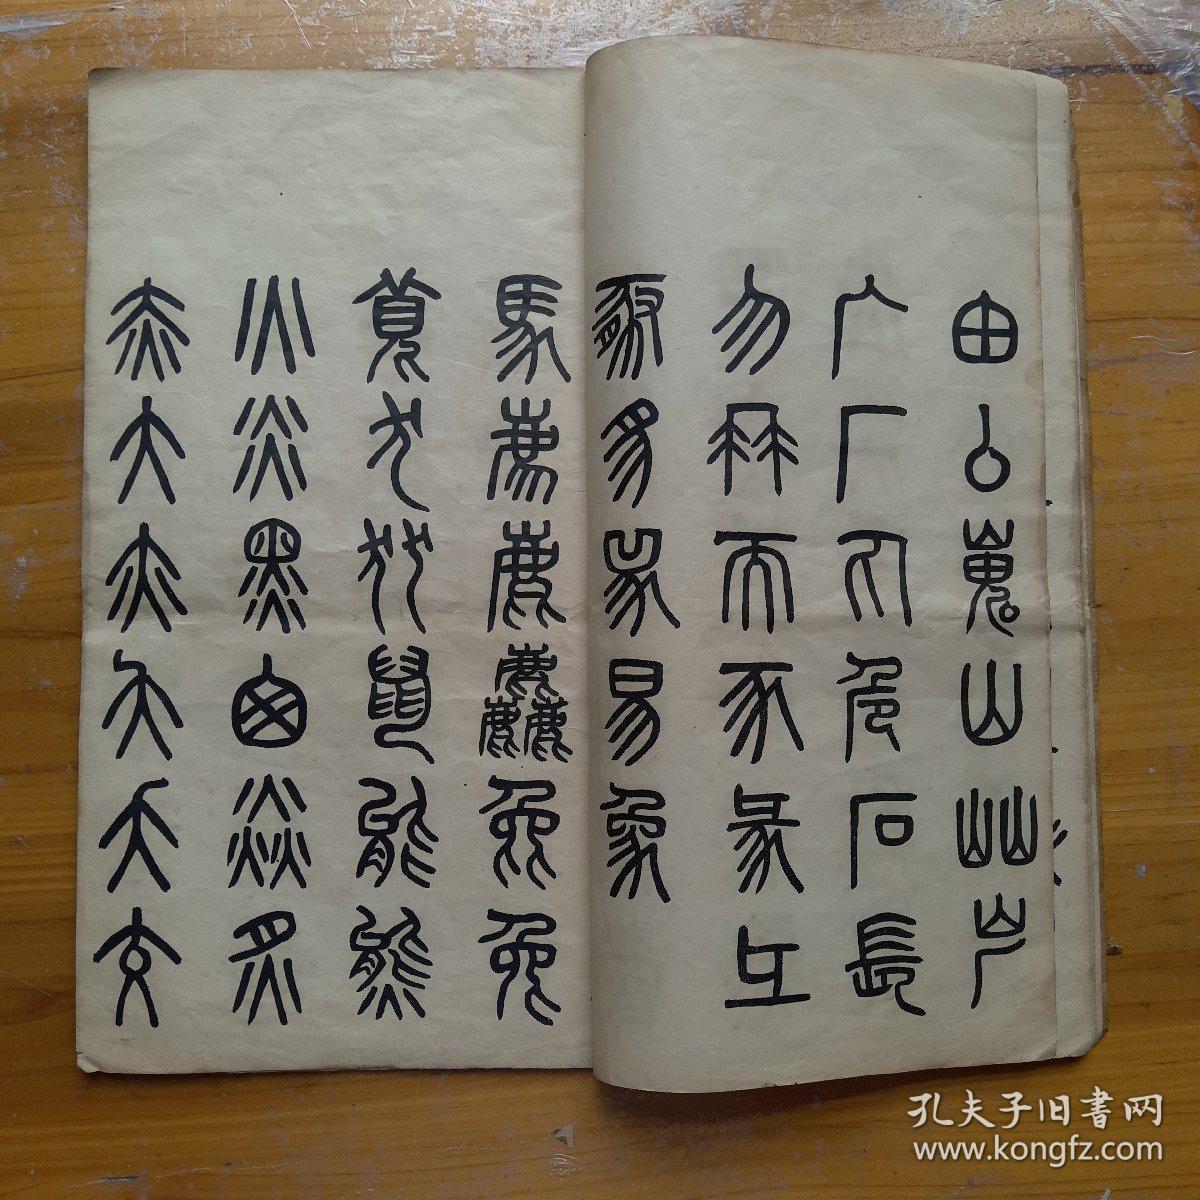 甶厶嵬山屾屵
广厂丸危石長
勿冄而豕㣇彑
豚豸兕易象
馬廌鹿麤㲋兔
萈犬㹜鼠能熊
火炎黑囪焱炙
赤大亦夨夭交
孔夫子旧書网
www.kongfz.com